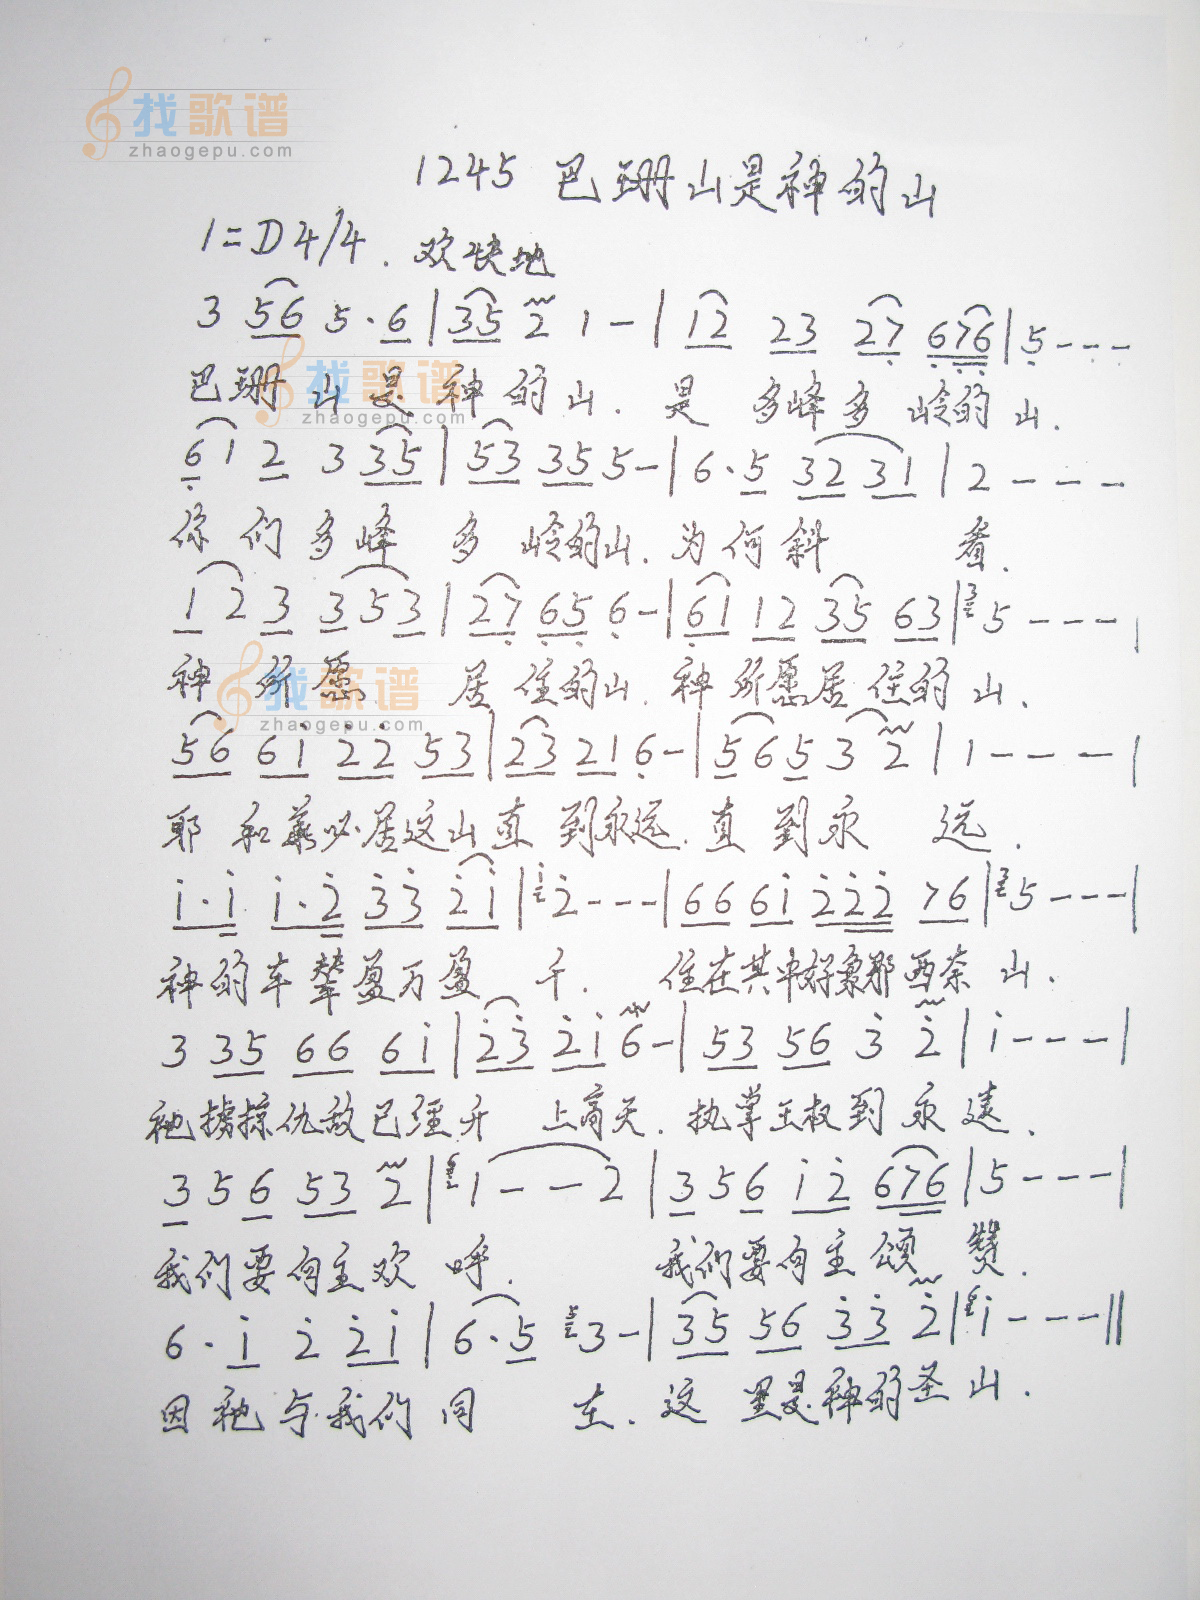 找歌谱
zhaogepu.com
1245 巴珊山是神的山
1=D 4/4. 欢快地
3 56 5·6|35 2 1-|12 23 27 676|5---
找歌谱
zhaogepu.com
巴珊山是神的山.是多峰多岭的山.
61 2 3 35|53 35 5-|6·5 32 31|2---
你们多峰多岭的山.为何斜看.
12 3 353|27 65 6-|61 12 35 63|5---|
神所愿居住的山.神所愿居住的山.
找歌谱
zhaogepu.com
56 6i 22 53|23 21 6-|565 3 2|1---|
耶和华必居这山直到永远.直到永远.
i·i i·2 33 2i|i2---|66 6i 222 76|35---|
神的车辇盈万盈千.住在其中好象那西奈山.
3 35 66 6i|23 2i 6-|53 56 3 2|i---|
祂掳掠仇敌已经升上高天.执掌王权到永远.
3 5 6 53 2|1--2|3 5 6 i2 676|5---|
我们要向主欢呼.我们要向主颂赞.
6·i 2 2i|6·5 53-|35 56 33 2|i---||
因祂与我们同在.这里是神的圣山.